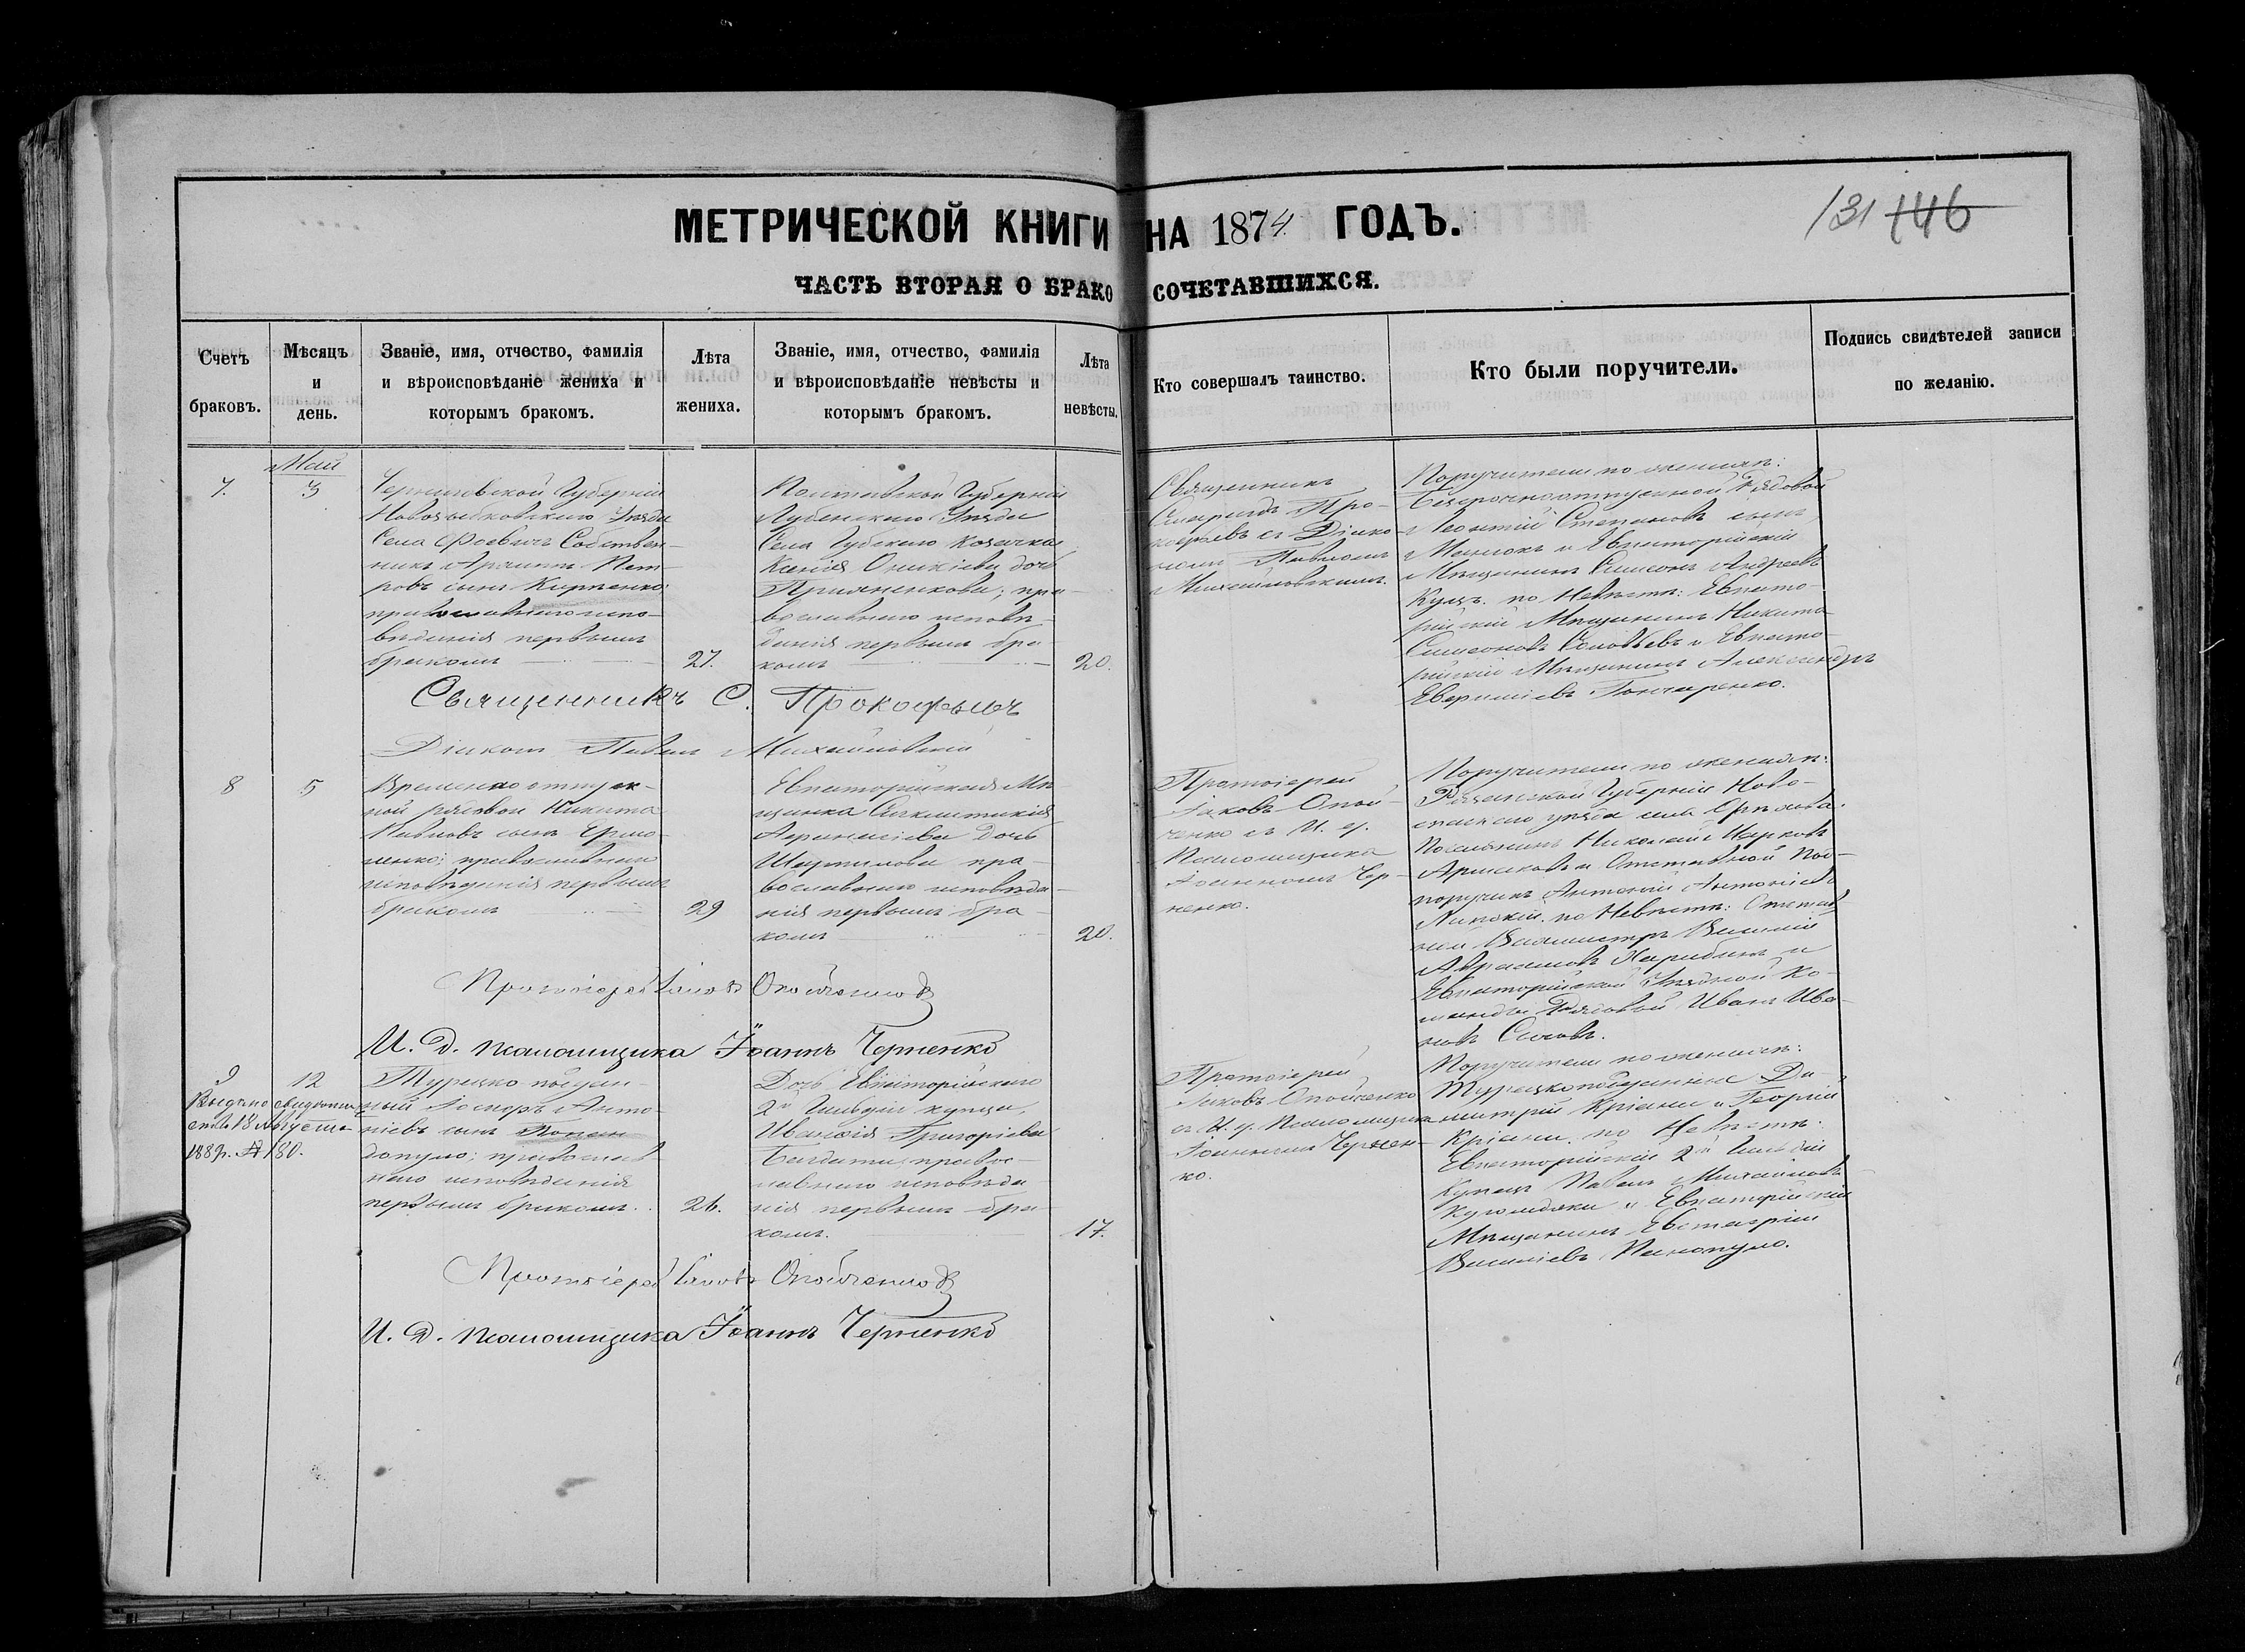 МЕТРИЧЕСКОЙ КНИГИ НА 1874 ГОДЪ.
131 146
ЧАСТЬ ВТОРАЯ О БРАКОСОЧЕТАВШИХСЯ.
Счетъ браковъ.
Мѣсяцъ и день.
Званіе, имя, отчество, фамилія
и вѣроисповѣданіе жениха и
которымъ бракомъ.
Лѣта
жениха.
Званіе, имя, отчество, фамилія
и вѣроисповѣданіе невѣсты и
которымъ бракомъ.
Лѣта
невѣсты.
Кто совершалъ таинство.
Кто были поручители.
Подпись свидѣтелей записи
по желанію.
Май
7.
3
Черниговской Губерніи
Новозыбковскаго Уѣзда
Села Собствен-
никъ Пет-
ровъ сынъ Кирпенко
православнаго испо-
вѣданія первымъ
бракомъ
27.
Полтавской Губерніи
Лубенскаго Уѣзда
Села Губскаго Козачка
Ксенія дочь
пра-
вославнаго исповѣ-
данія первымъ бра-
комъ
20.
Священникъ
Спиридъ Про-
кофьевъ съ Діако-
номъ Павломъ
Михайловскимъ.
Поручители по женихѣ:
Безсрочноотпускной Рядовой
Леонтій Степановъ сынъ
и Евпаторійскій
Мѣщанинъ Симеонъ Андреевъ
по Невѣстѣ: Евпато-
рійскій Мѣщанинъ Никита
Симеоновъ Соловьевъ и Евпато-
рійскій Мѣщанинъ Александръ
Гончаренко.
Священникъ С. Прокофьевъ
Діаконъ Павелъ Михайловскій
8
5
Временно отпуск-
ной рядовой Никита
Павловъ сынъ Ермо-
ленко; православнаго
исповѣданія первымъ
бракомъ
29
Евпаторійская Мѣ-
щанка
Аѳанасіева Дочь
Шатилова пра-
вославнаго исповѣда-
нія первымъ бра-
комъ
20.
Протоіерей
Іаковъ Опой-
ченко съ И. д.
Псаломщика
Іоанномъ Чер-
ненко.
Поручители по женихѣ:
Губерніи Ново-
уѣзда села
Поселянинъ Николай
и Отставной Под-
поручикъ Антоній Антоніевъ
по Невѣстѣ: Отстав-
ной Вахмистръ Василій
Авраамовъ и
Евпаторійской Уѣздной Ко-
манды Рядовой Иванъ Ива-
новъ
Протоіерей Іаковъ Опойченко
И. д. псаломщика Іоаннъ Черненко
9
12
Выдано свидѣтель-
ство 18 Августа
188 г. № 180.
Турецко поддан-
ный Анто-
ніевъ сынъ Попан-
допуло; православ-
наго исповѣданія
первымъ бракомъ.
26.
Дочь Евпаторійскаго
2й Гильдіи купца,
Григоріева
правос-
лавнаго исповѣда-
нія первымъ бра-
комъ.
17.
Протоіерей
Іаковъ Опойченко
съ И. д. Псаломщика
Іоанномъ Чернен-
ко.
Поручители по женихѣ:
Турецкоподданные Ди-
митрій Кріани и Георгій
Кріани. по Невѣстѣ:
Евпаторійскій 2й Гильдіи
Купецъ Павелъ Михайловъ
и Евпаторійскій
Мѣщанинъ Евстафій
Василіевъ
Протоіерей Іаковъ Опойченко
И. д. псаломщика Іоаннъ Черненко